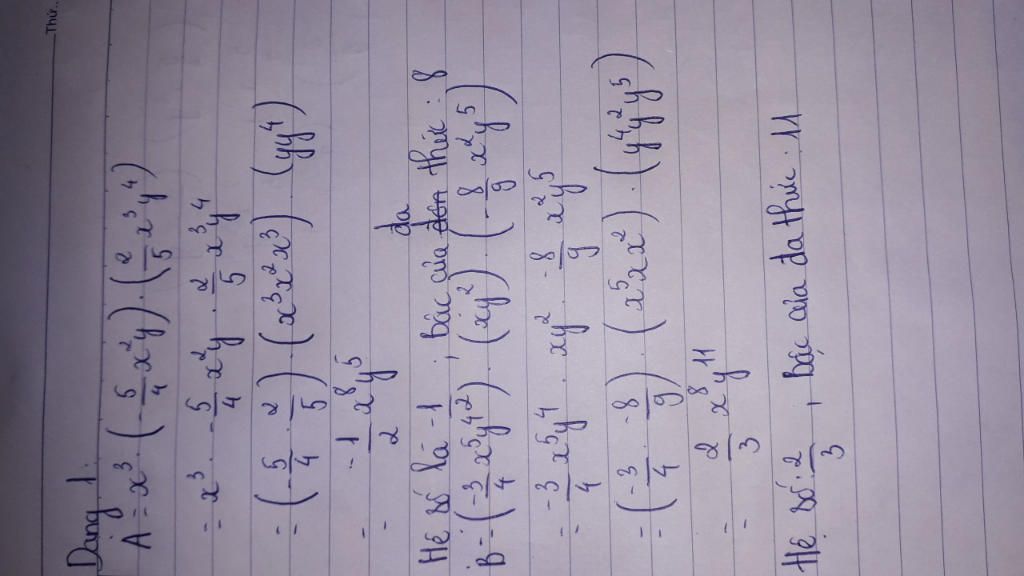 Thứ..
Dạng 1.
A = x³ . (-5/4 x²y) . (2/5 x³y⁴)
= x³ . -5/4 x²y . 2/5 x³y⁴
= (-5/4 . 2/5) . (x³x²x³) . (yy⁴)
= -1/2 x⁸y⁵
Hệ số là -1/2 , bậc của đa thức : 8
B = (-3/4 x⁵y⁴) . (xy²) . (-8/9 x²y⁵)
= -3/4 x⁵y⁴ . xy² . -8/9 x²y⁵
= (-3/4 . -8/9) . (x⁵xx²) . (y⁴y²y⁵)
= 2/3 x⁸y¹¹
Hệ số: 2/3 , bậc của đa thức : 11